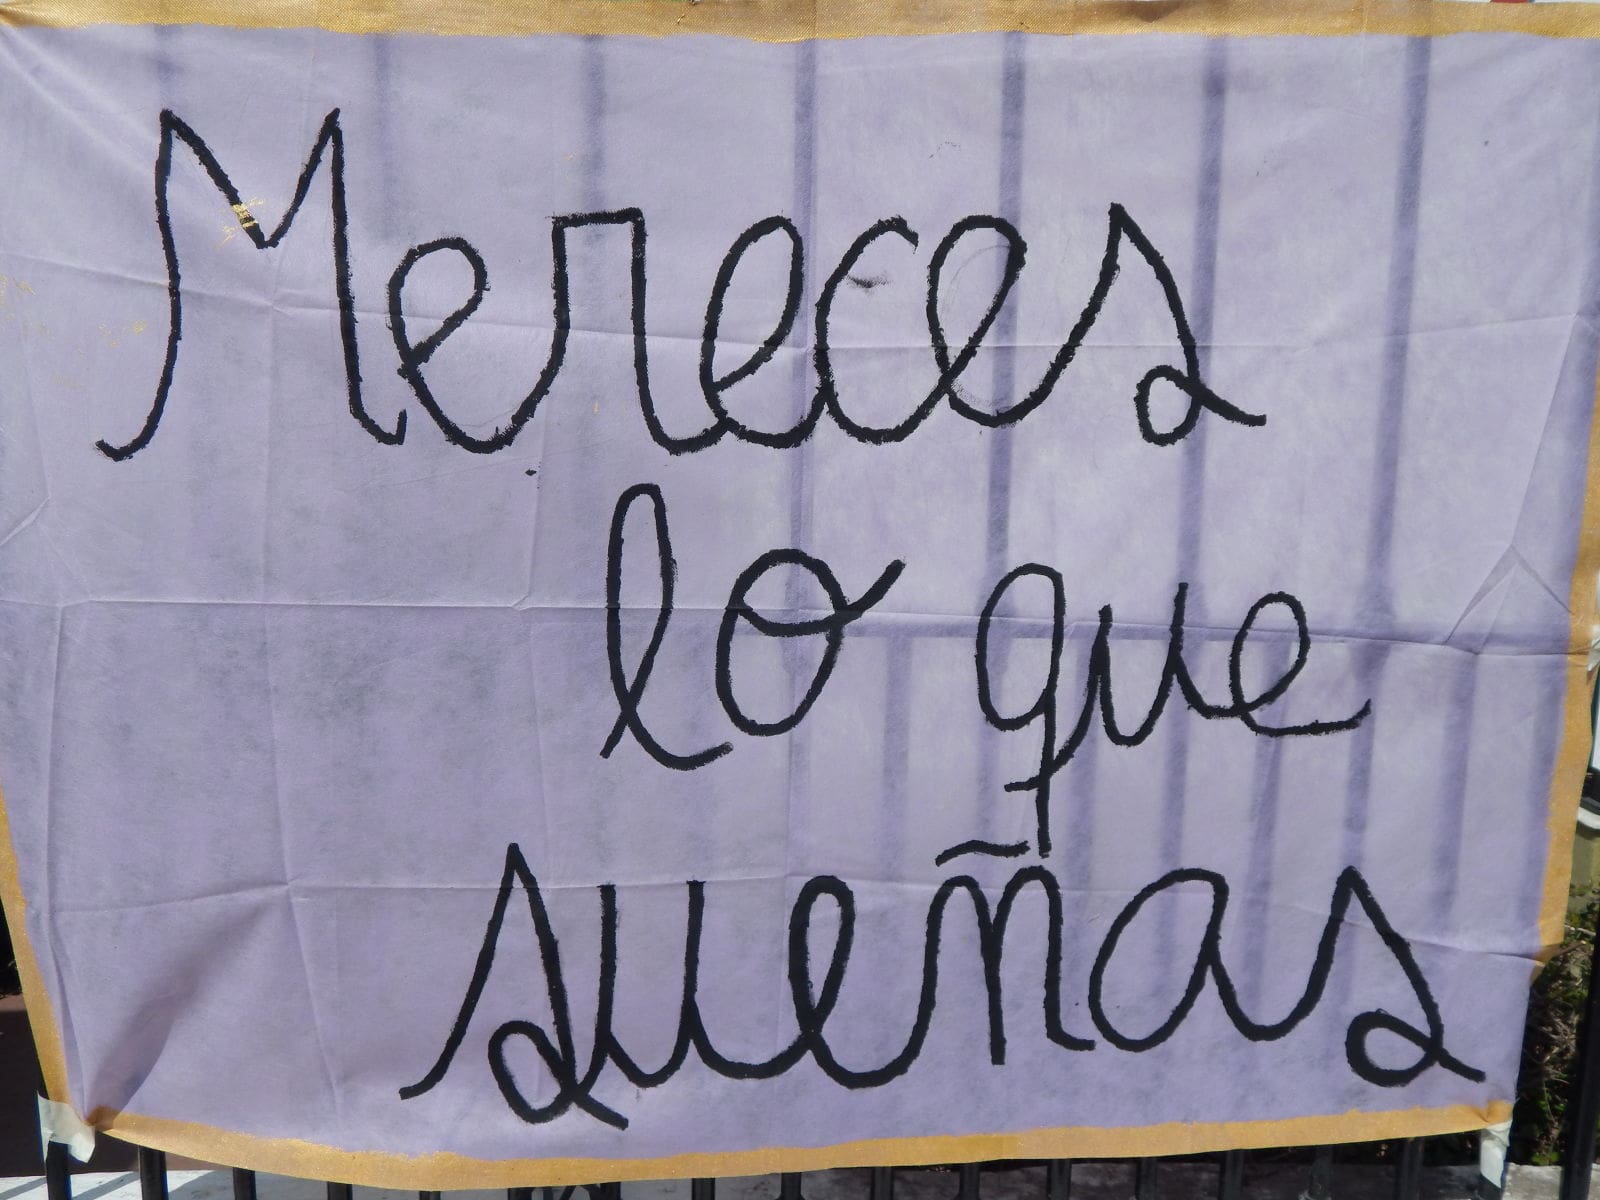 Mereces
lo que
sueñas